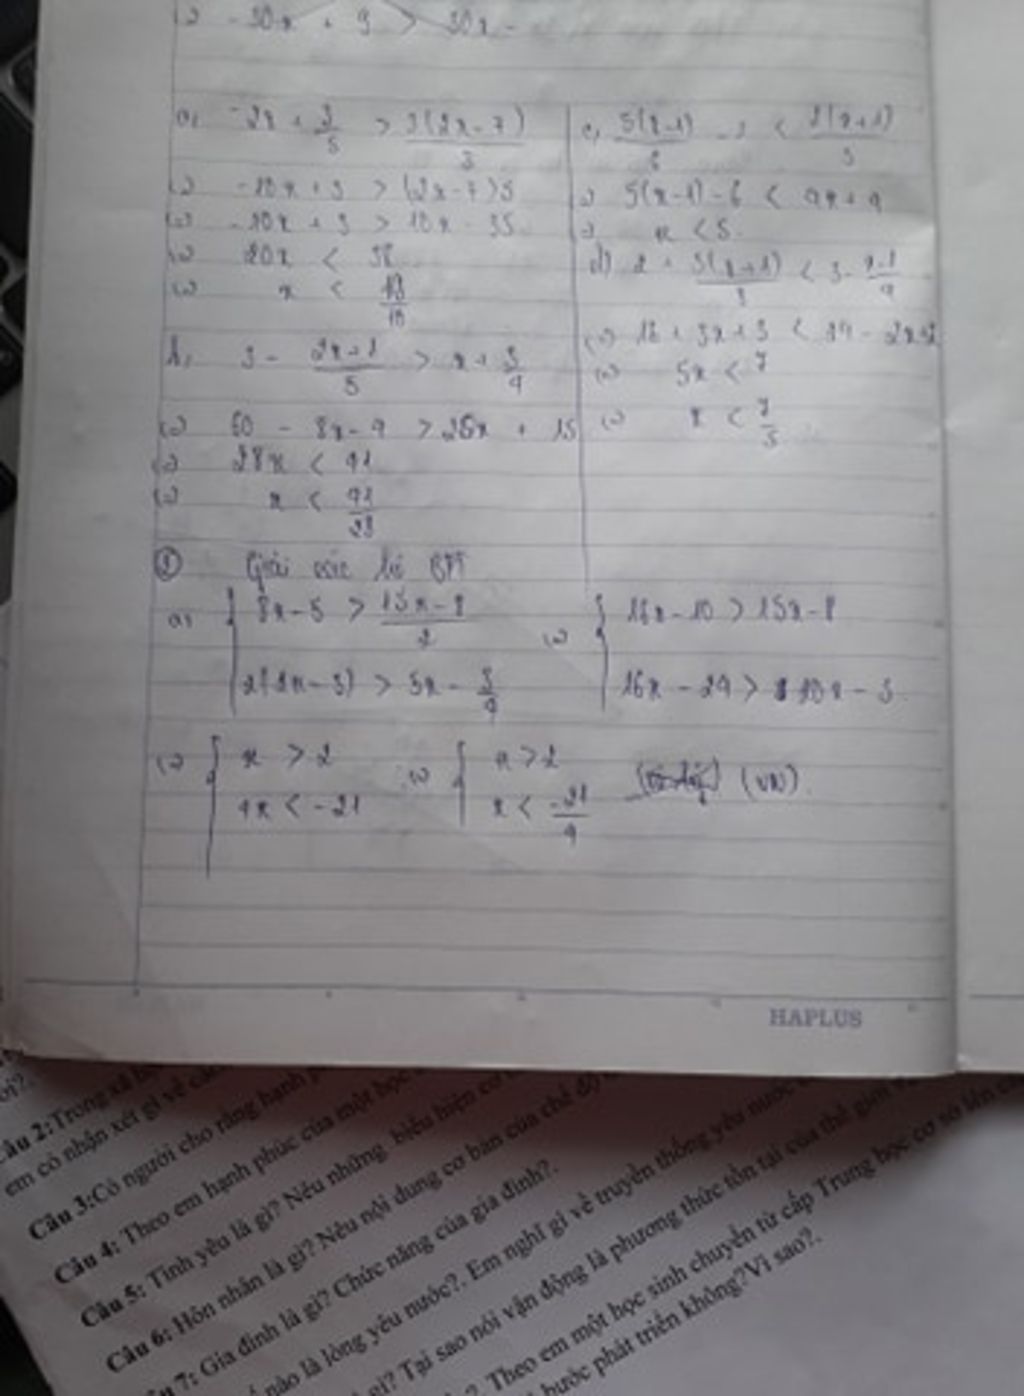 -30x + 9 > 30x -
a, -2x + 3/5 > 3(2x-7)/3
<=> -10x + 3 > (2x-7)5
<=> -10x + 3 > 10x - 35
<=> 20x < 38
<=> x < 19/10
b, 3 - (2x+1)/5 > x + 3/4
<=> 60 - 8x - 4 > 20x + 15
<=> 28x < 41
<=> x < 41/28
c, 5(x-1)/6 - 1 < 2(x+1)/3
<=> 5(x-1) - 6 < 4x + 4
<=> x < 5
d) 2 + 3(x+1)/8 < 3 - (x-1)/4
<=> 16 + 3x + 3 < 24 - 2x + 2
<=> 5x < 7
<=> x < 7/5
② Giải các hệ BPT
a, { 8x - 5 > (15x - 8)/2 <=> { 16x - 10 > 15x - 8
2(2x - 3) > 5x - 3/4 16x - 24 > 20x - 3
<=> { x > 2 <=> { x > 2 (vn)
4x < -21 x < -21/4
HAPLUS
Câu 2: Trong xã
em có nhận xét gì về
Câu 3: Có người cho rằng hạnh
Câu 4: Theo em hạnh phúc của một học
Câu 5: Tình yêu là gì? Nêu những biểu hiện cơ
Câu 6: Hôn nhân là gì? Nêu nội dung cơ bản của chế độ
7: Gia đình là gì? Chức năng của gia đình?.
nào là lòng yêu nước?. Em nghĩ gì về truyền thống yêu nước
gì? Tại sao nói vận động là phương thức tồn tại của thế giới
?. Theo em một học sinh chuyển từ cấp Trung học cơ sở lên
bước phát triển không? Vì sao?.